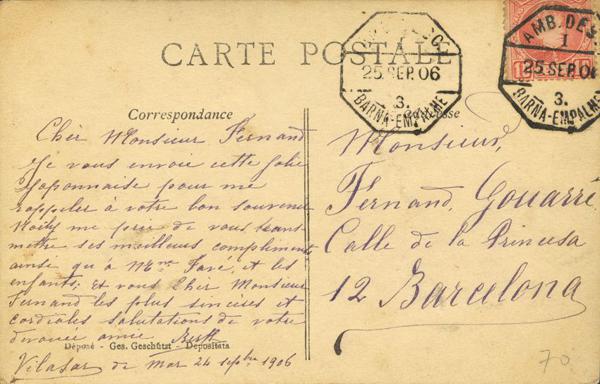 CARTE POSTALE
AMB. DESC.
1
25 SEP. 06
3.
BARNA-EMPALME
25 SEP 06
3.
BARNA-EMPALME
Correspondance
Cher Monsieur Fernand
Je vous envoie cette jolie
Japonnaise pour me
rappeler à votre bon souvenir
me prie de vous trans
mettre ses meilleurs compliments
ainsi qu'à Mme Favé, et les
enfants; Et vous Cher Monsieur
Fernand les plus sincères et
cordiales salutations de votre
dévouée amie
Vilasar de Mar 24 septbre 1906
Monsieur,
Fernand Gouarré
Calle de la Princesa
12 Barcelona
Déposé - Ges. Geschützt - Depositata
70